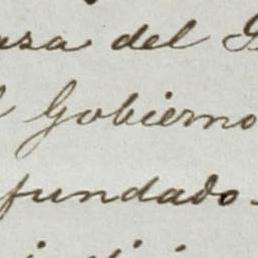 del
Gobierno
fundado